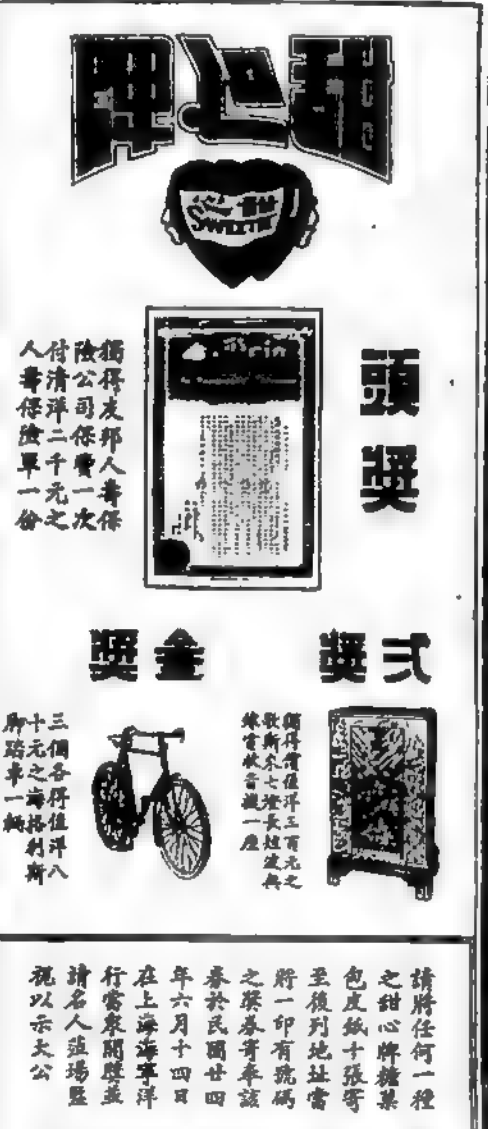 甜心牌
頭獎
獨得友邦人壽保
險公司保費一次
付清洋二千元之
人壽保險單一份
弍獎
獨得價值洋三百元之
七燈長短波無
線電收音機一座
金獎
三個各得值洋八
十元之海格利斯
脚踏車一輛
請將任何一種
之甜心牌糖菓
包皮紙十張寄
至後列地址當
將一印有號碼
之獎券寄奉該
券於民國廿四
年六月十四日
在上海海寧洋
行當眾開獎並
請名人蒞場監
視以示大公